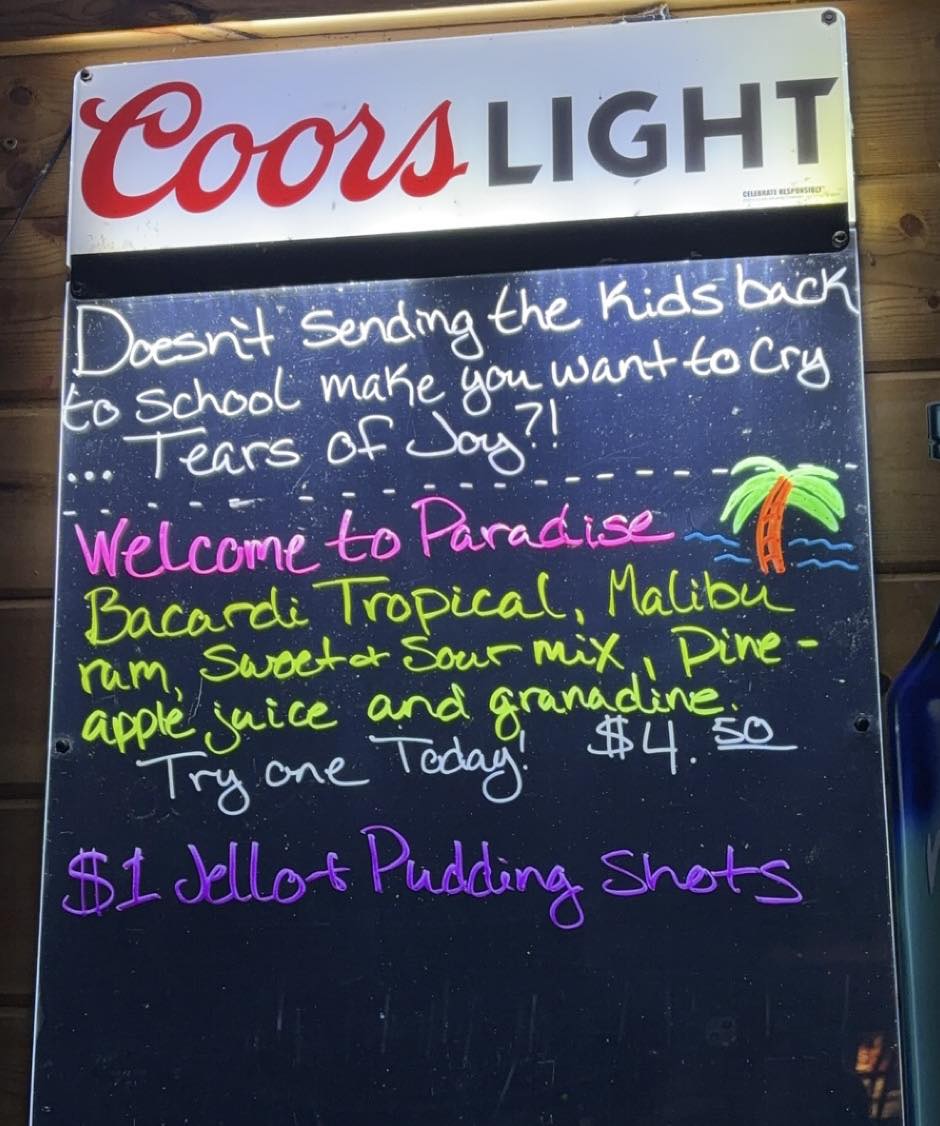 Coors LIGHT
CELEBRATE RESPONSIBLY
Doesn't Sending the Kids back
to School make you want to Cry
... Tears of Joy?!
Welcome to Paradise
Bacardi Tropical, Malibu
rum, Sweet & Sour mix, Pine-
apple juice and granadine.
Try one Today! $4.50
$1 Jello & Pudding Shots